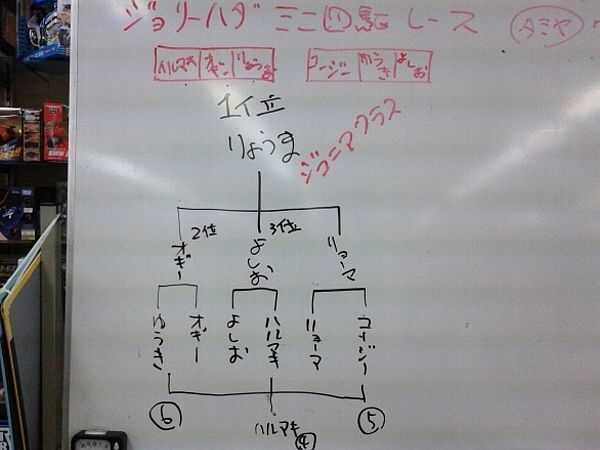 ジョリーハダ ミニ四駆レース タミヤ
ハルマキ オギー りょうま
コージー ゆうき よしお
1イ立
りょうま
ジュニアクラス
2位 3位
オギー よしお リョーマ
ゆうき オギー よしお ハルマキ リョーマ コージー
⑥ ハルマキ④ ⑤